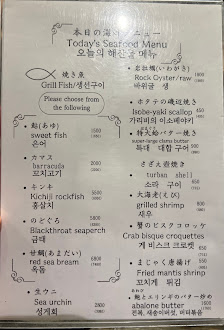 本日の海鮮メニュー
Today's Seafood Menu
오늘의 해산물 메뉴
焼き魚
Grill Fish/생선구이
Please choose from
the following
鮎(あゆ)
sweet fish
은어
カマス
barracuda
꼬치고기
キンキ
Kichiji rockfish
홍살치
のどぐろ
Blackthroat seaperch
금태
甘鯛(あまだい)
red sea bream
옥돔
生ウニ
Sea urchin
성게회
岩牡蠣(いわがき)
Rock Oyster/raw
바위굴 생
ホタテの磯辺焼き
Isobe-yaki scallop
가리비의 이소베야키
特大蛤バター焼き
super-large clams butter
특대 대합 구이
さざえ壺焼き
turban shell
소라 구이
大海老(えび)
grilled shrimp
새우
蟹のビスクコロッケ
Crab bisque croquettes
게 비스크 크로켓
まじゃく唐揚げ
Fried mantis shrimp
꼬치 튀김
鮑とエリンギのバター炒め
abalone butter